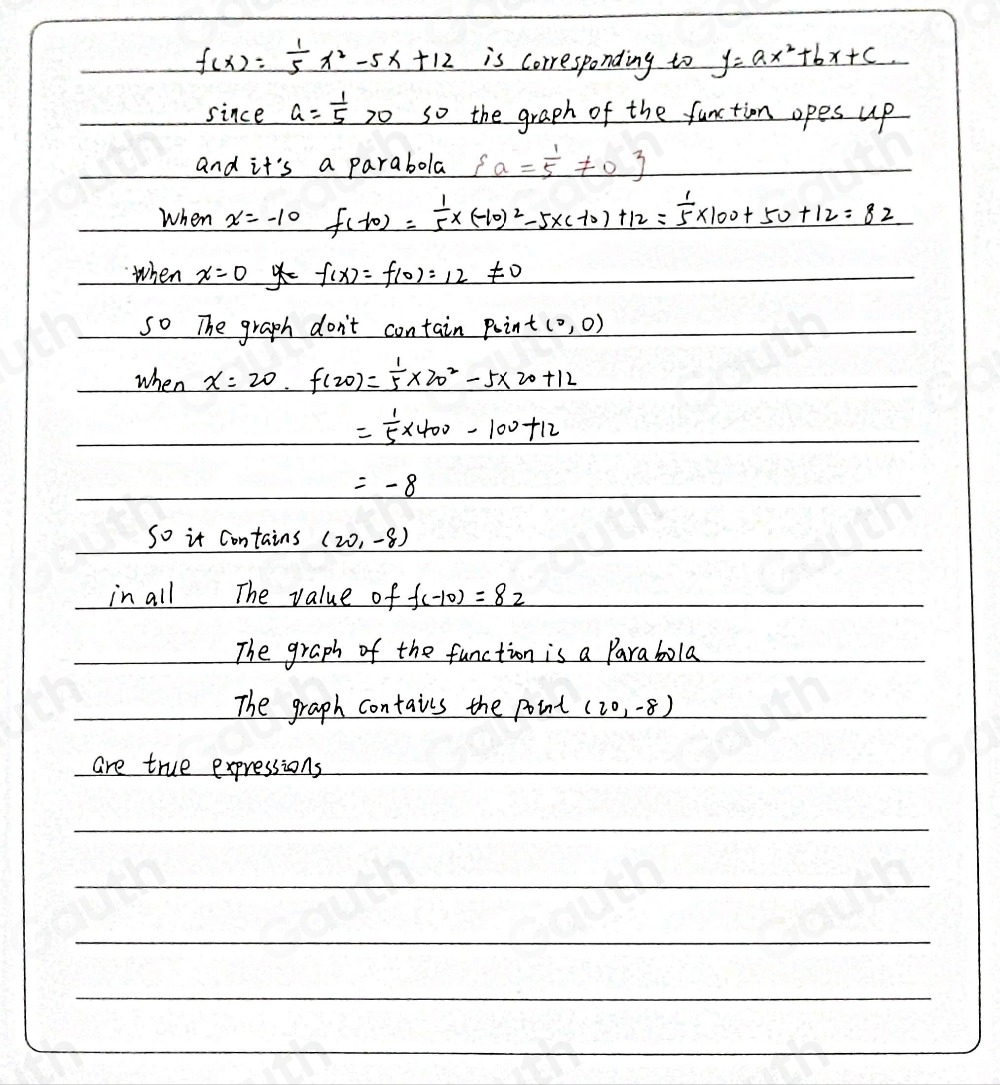 f(x) = 1/5 x² - 5x + 12 is corresponding to y = ax² + bx + c.
since a = 1/5 > 0 so the graph of the function opes up
and it's a parabola {a = 1/5 ≠ 0}
When x = -10 f(-10) = 1/5 × (-10)² - 5×(-10) + 12 = 1/5 × 100 + 50 + 12 = 82
when x = 0 f(x) = f(0) = 12 ≠ 0
so The graph don't contain point (0, 0)
when x = 20. f(20) = 1/5 × 20² - 5 × 20 + 12
= 1/5 × 400 - 100 + 12
= -8
So it contains (20, -8)
in all The value of f(-10) = 82
The graph of the function is a Parabola
The graph contains the point (20, -8)
are true expressions